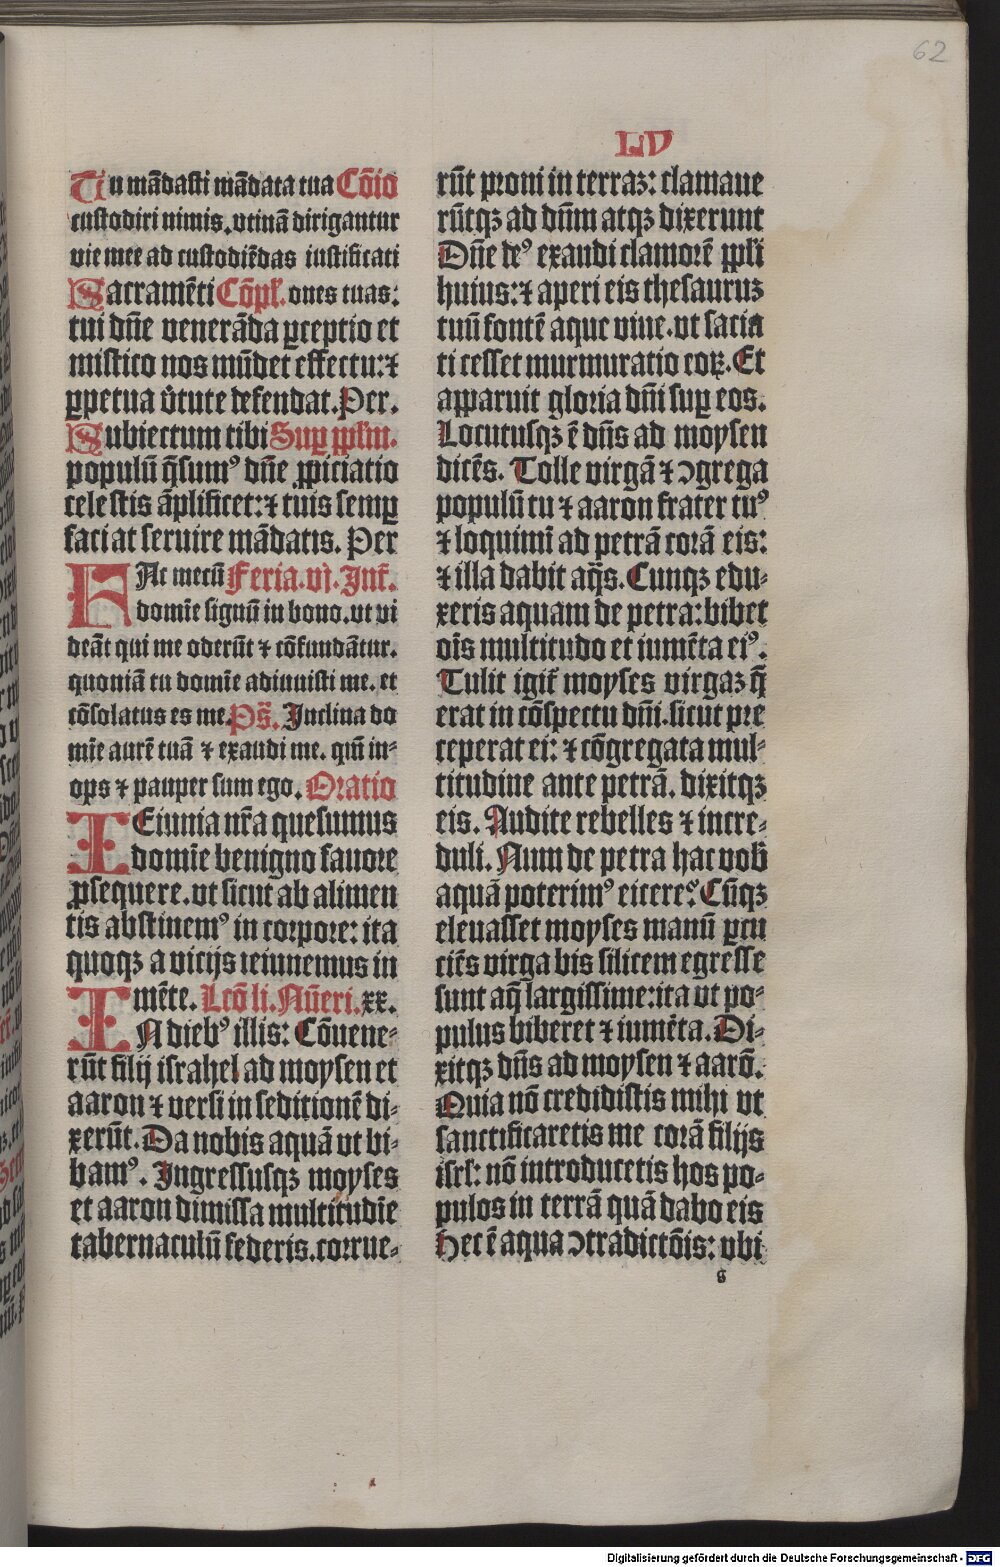 62
LV
Tu mādasti mādata tua Cōio
custodiri nimis. vtinā dirigantur
vie mee ad custodiēdas iustificati
Sacramēti Cōpł. ones tuas:
tui dn̄e venerāda ꝑceptio et
mistico nos mūdet effectu: ⁊
ꝑpetua v̓tute defendat. Per.
Subiectum tibi Suꝑ ꝓpłm.
populū q̄sumꝰ dn̄e ꝓpiciatio
celestis āplificet: ⁊ tuis semꝑ
faciat seruire mādatis. Per
FAc mecū Feria. vi. Int̄.
domīe signū in bono. vt vi
deāt qui me oderūt ⁊ cōfundātur.
quoniā tu domīe adiuuisti me. et
cōsolatus es me. Ps̄. Inclina do
mīe aurē tuā ⁊ exaudi me. qm̄ in⸗
ops ⁊ pauper sum ego. Oratio
IEiunia nr̄a quesumus
domīe benigno fauore
ꝓsequere. vt sicut ab alimen
tis abstinemꝰ in corpore: ita
quoqꝫ a vicijs ieiunemus in
mēte. Lcō li. Nūeri. xx.
IN diebꝰ illis: Cōuene⸗
rūt filij israhel ad moysen et
aaron ⁊ versi in seditionē di⸗
xerūt. Da nobis aquā vt bi⸗
bamꝰ. Ingressusqꝫ moyses
et aaron dimissa multitudīe
tabernaculū federis. corrue⸗
rūt proni in terraꝫ: clamaue
rūtqꝫ ad dn̄m atqꝫ dixerunt
Dn̄e deꝰ exaudi clamorē ꝓpłi
huius: ⁊ aperi eis thesauruꝫ
tuū fontē aque viue. vt sacia
ti cesset murmuratio eoꝝ. Et
apparuit gloria dn̄i suꝑ eos.
Locutusqꝫ ē dn̄s ad moysen
dicēs. Tolle virgā ⁊ ꝯgrega
populū tu ⁊ aaron frater tuꝰ
⁊ loquimī ad petrā corā eis:
⁊ illa dabit aq̄s. Cunqꝫ edu⸗
xeris aquam de petra: bibet
oīs multitudo et iumēta eiꝰ.
Tulit igit̄ moyses virgaꝫ q̄
erat in cōspectu dn̄i. sicut pre
ceperat ei: ⁊ cōgregata mul⸗
titudine ante petrā. dixitqꝫ
eis. Audite rebelles ⁊ incre⸗
duli. Num de petra hac vob̄
aquā poterimꝰ eicere? Cūqꝫ
eleuasset moyses manū ꝑcu
ciēs virga bis silicem egresse
sunt aq̄ largissime: ita vt po⸗
pulus biberet ⁊ iumēta. Di⸗
xitqꝫ dn̄s ad moysen ⁊ aarō.
Quia nō credidistis mihi vt
sanctificaretis me corā filijs
isrł: nō introducetis hos po⸗
pulos in terrā quā dabo eis
Hec ē aqua ꝯtradictōis: vbi
g
Digitalisierung gefördert durch die Deutsche Forschungsgemeinschaft - DFG